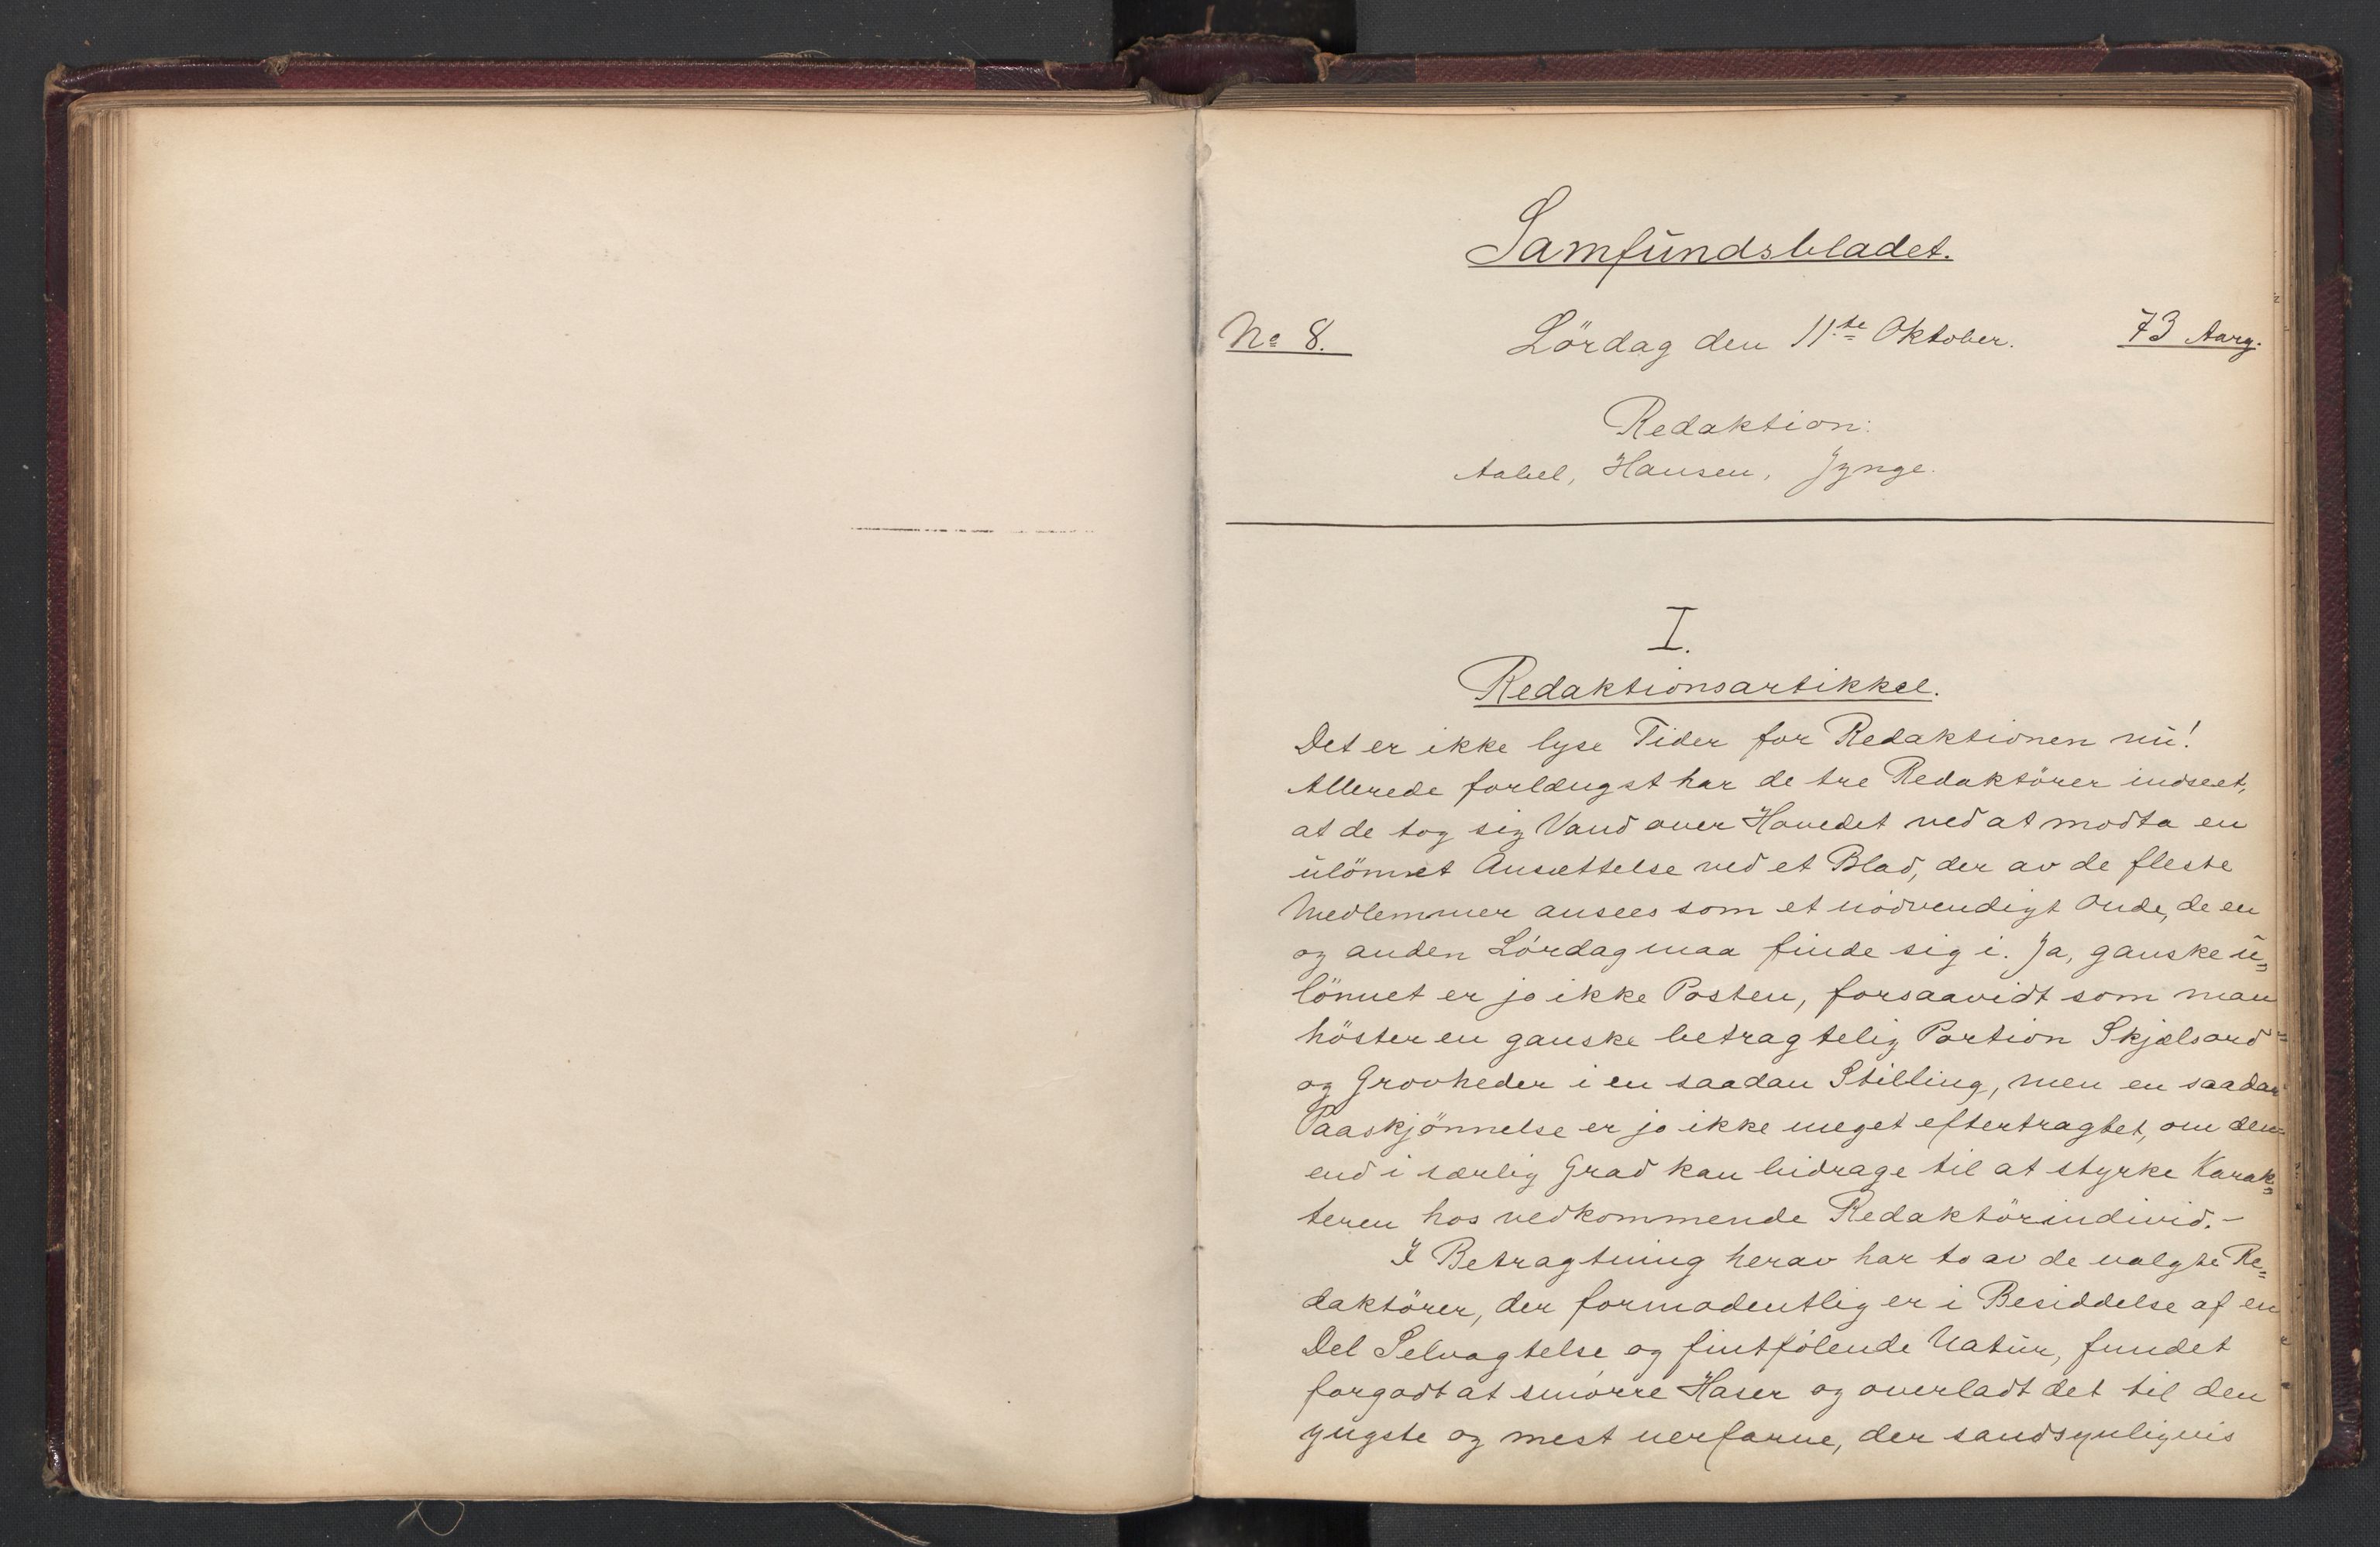 Samfundsbladet.
No 8. Lördag den 11te Oktober. 73 Aarg.
Redaktion:
Aabel, Hansen, Jynge.
I.
Redaktionsartikkel.
Det er ikke lyse Tider for Redaktionen nu!
Allerede forlængst har de tre Redaktörer indseet,
at de tog sig Vand over Hovedet ved at modta en
ulönnet Ansættelse ved et Blad, der av de fleste
Medlemmer ansees som et nödvendigt Onde, de en
og anden Lördag maa finde sig i. Ja, ganske u=
lönnet er jo ikke Posten, forsaavidt som man
höster en ganske betragtelig Portion Skjælsord=
og Grovheder i en saadan Stilling, men en saadan
Paaskjönnelse er jo ikke meget eftertragtet, om den=
end i særlig Grad kan bidrage til at styrke Karak=
teren hos vedkommende Redaktörindivid.-
I Betragtning herav har to av de valgte Re=
daktörer, der formodentlig er i Besiddelse af en
Del Selvagtelse og fintfölende Natur, fundet
forgodt at smörre Haser og overladt det til den
yngste og mest uerfarne, der sandsynligvis